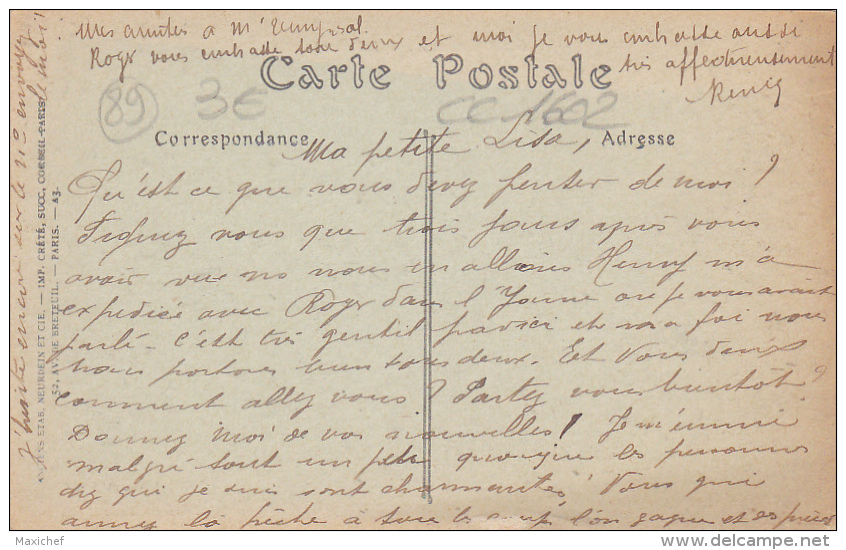 Mes amitiés à Mr
Roger vous embrasse tous deux et moi je vous embrasse aussi
très affectueusement
Carte Postale
89
3€
CC1602
Correspondance
Adresse
Ma petite Lisa,
Qu'est ce que vous devez penser de moi ?
Figurez vous que trois jours après vous
avoir vue nous nous en allions Henry m'a
expédiée avec Roger dans l'Yonne où je vous avais
parlé. C'est très gentil par ici et ma foi nous
nous portons bien tous deux. Et vous deux
comment allez vous ? Partez vous bientôt ?
Donnez moi de vos nouvelles ! Je m'ennuie
malgré tout un peu quoique les personnes
chez qui je suis sont charmantes. Vous qui
aimez la pêche à tous les
J'habite encore sur le envoyez
le moi !
ANCIENS ETAB. NEURDEIN ET CIE. — IMP. CRÉTÉ, SUCC, CORBEIL-PARIS
52, AVENUE BRETEUIL. — PARIS. — A3.
Maxichef
delcampe.net